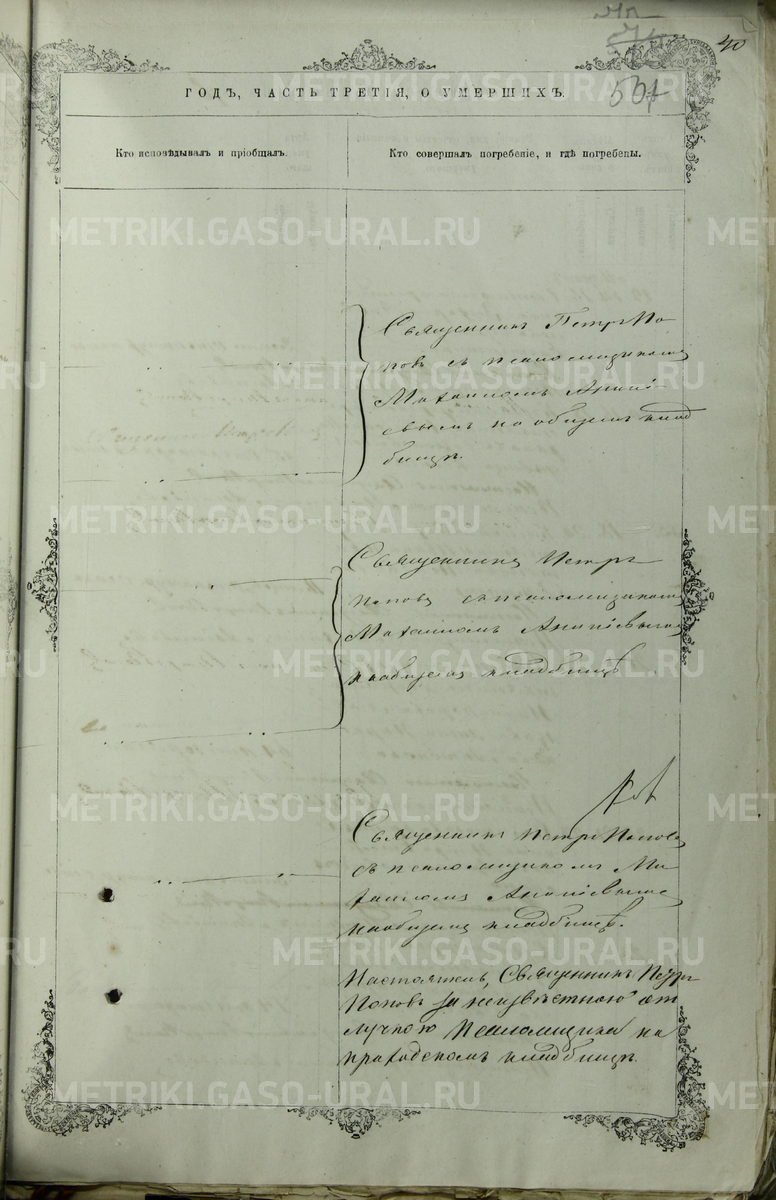 40
507
ГОДЪ, ЧАСТЬ ТРЕТІЯ, О УМЕРШИХЪ.
Кто исповѣдывалъ и пріобщалъ.
Кто совершалъ погребеніе, и гдѣ погребены.
Священникъ Петръ По-
повъ съ псаломщикомъ
Михаиломъ Анані-
евымъ на общемъ клад
бищѣ.
Священникъ Петръ
Поповъ съ псаломщикомъ
Михаиломъ Ананіевымъ
на общемъ кладбищѣ
Священникъ Петръ Поповъ
съ псаломщикомъ Ми-
хаиломъ Ананіевымъ
на общемъ кладбищѣ.
Настоятель, Священникъ Петръ
Поповъ за неизвѣстною от
лучкою Псаломщика на
приходскомъ кладбищѣ
METRIKI.GASO-URAL.RU